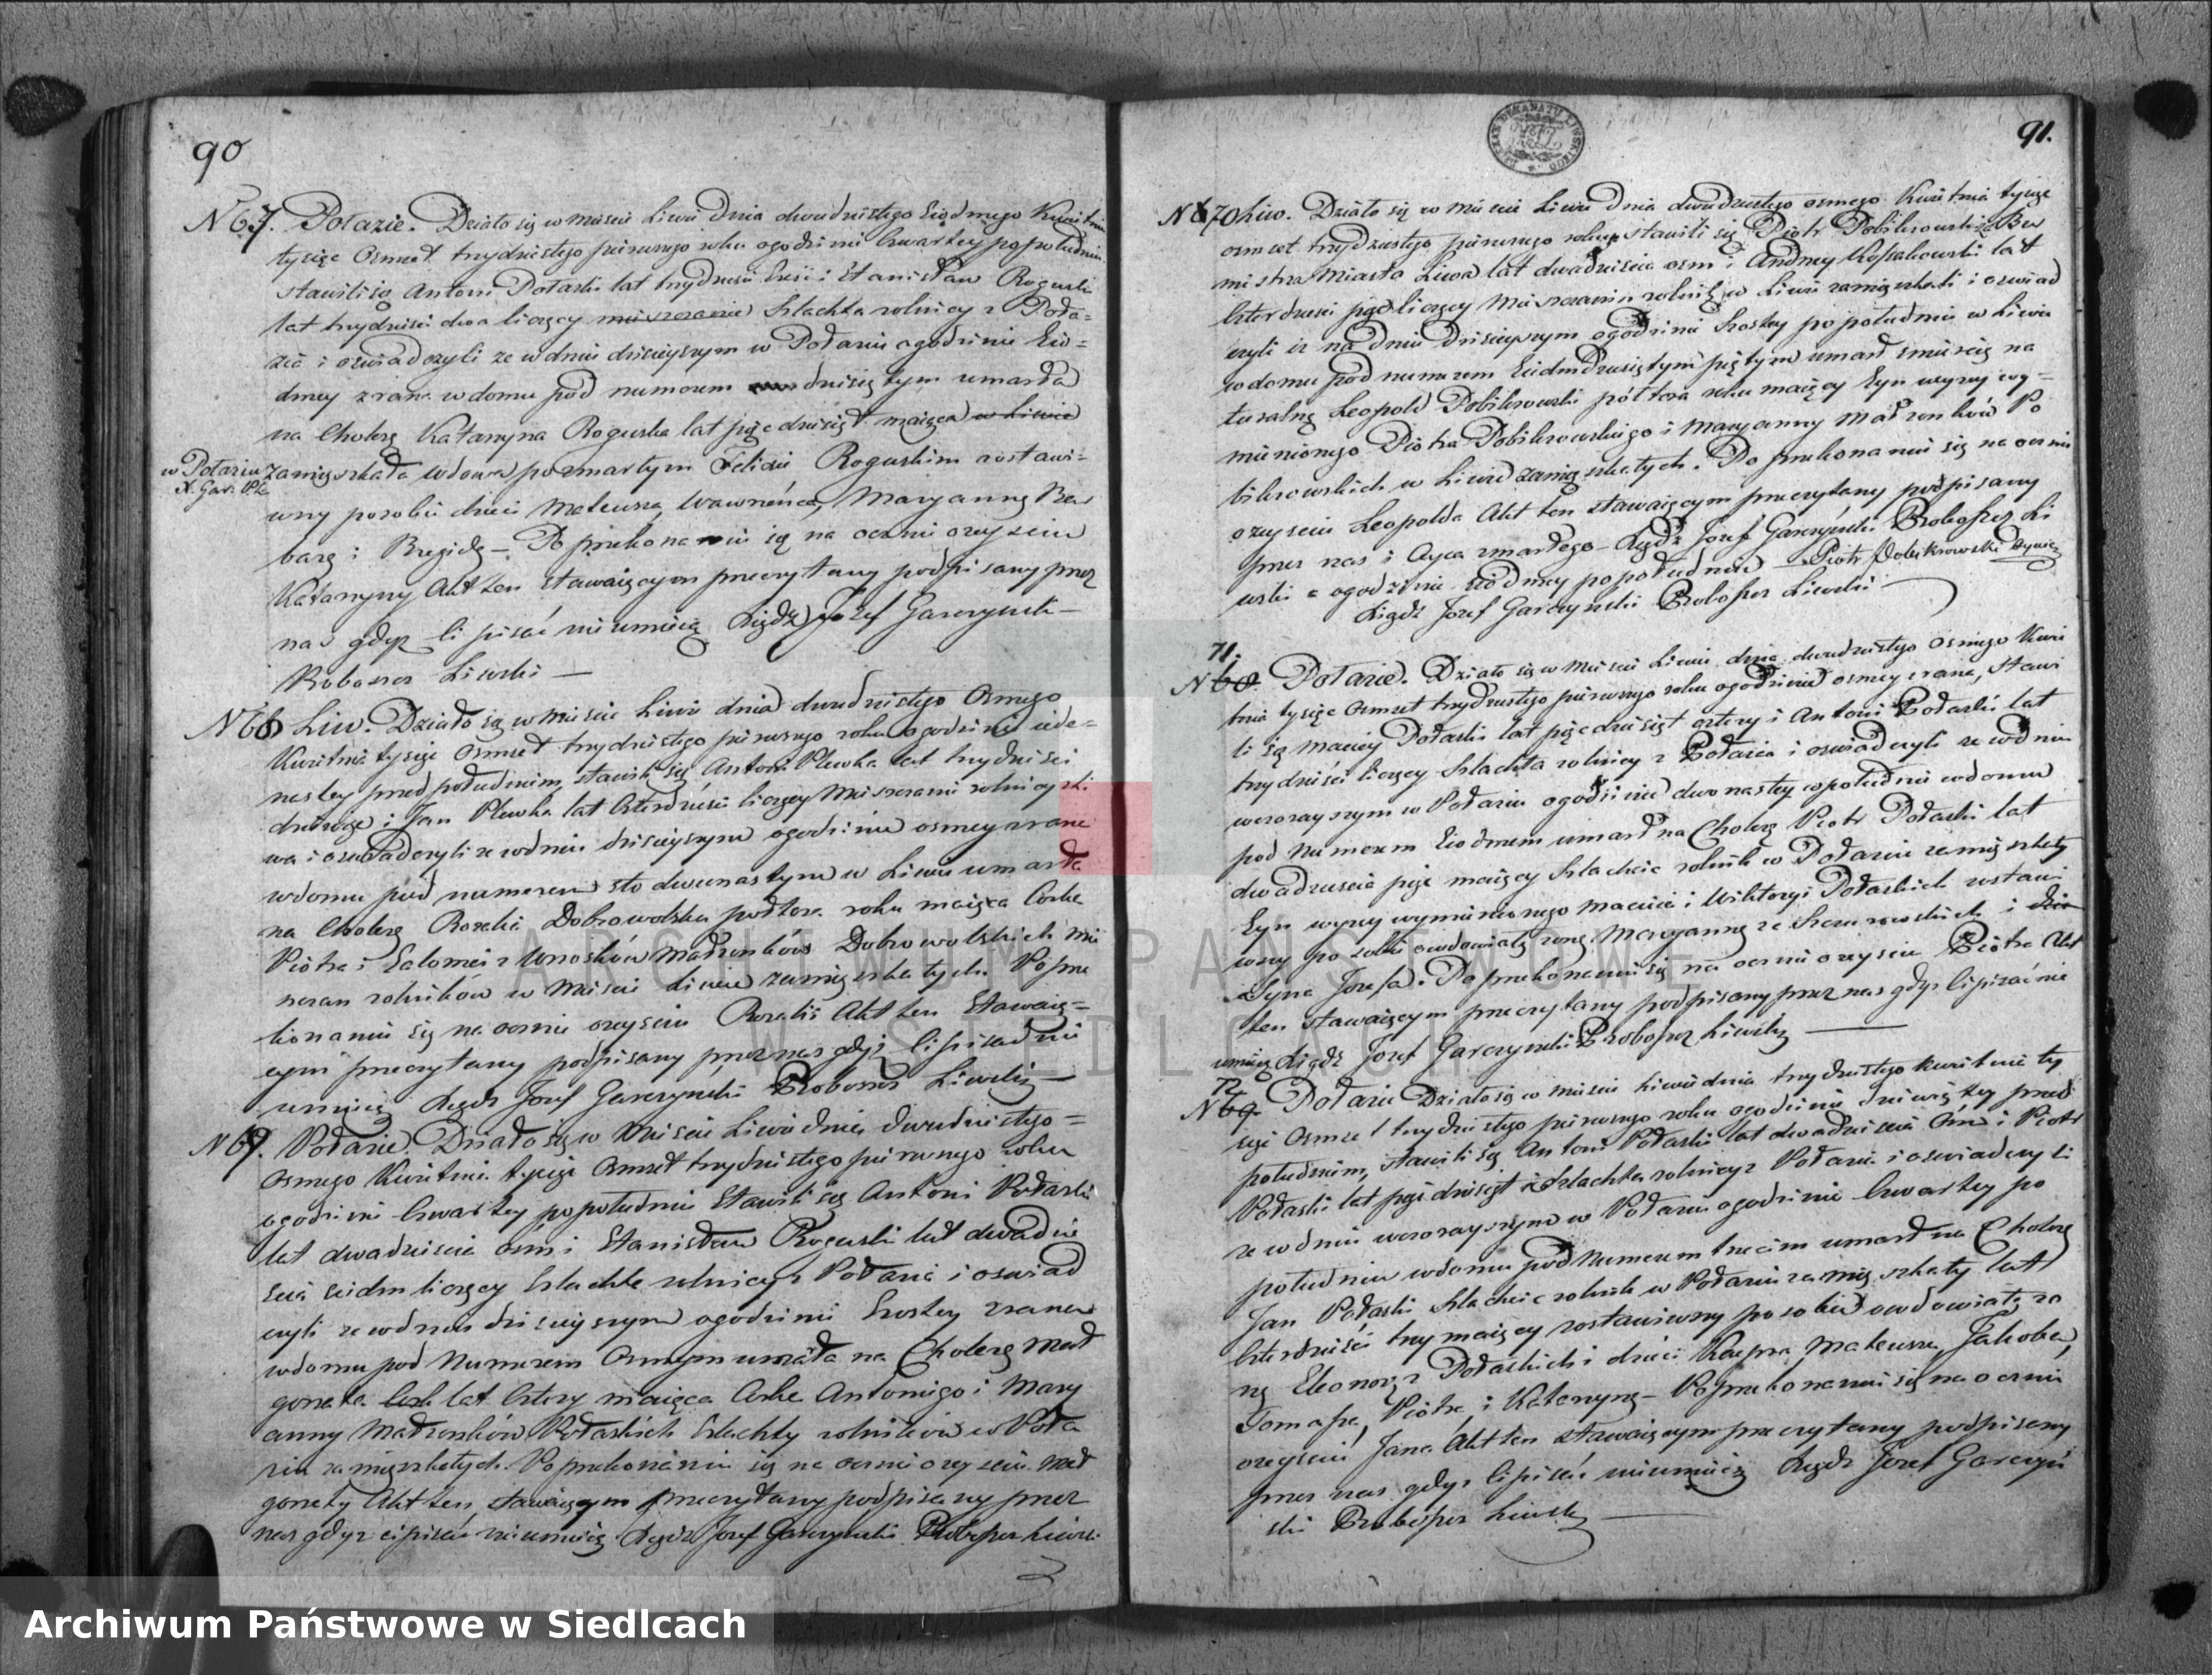 90
N 67. Połazie. Działo się w mieście Liwie Dnia dwudziestego Siódmego Kwietnia
tysiąc Osmset trzydziestego pierwszego roku o godzinie Czwartey popołudniu
stawili się Antoni Połaski lat trzydzieści i Stanisław Roguski
lat trzydzieści dwa liczący mieszczanie Szlachta rolnicy z Poła=
zia i oświadczyli ze w dniu dzisieyszym w Połaziu o godzinie Siu=
dmey z rana w domu pod numerem dziesiątym umarła
na Cholerę Katarzyna Roguska lat pięcdziesiąt maiąca w Liwie
w Połaziu zamięszkała wdowa po zmarłym Felicie Roguskim zostawi=
X. Gar: Pl:
wszy po sobie dzieci Mateusza, Wawrzeńca, Maryannę Bar
barę i Brygidę – Po przekonaniu się na oczni o zeyściu
Katarzyny Akt ten stawaiącym przeczytany podpisany przez
nas gdyz li pisać nieumieią Xiądz Jozef Garczynski –
Proboszcz Liwski —
N 68 Liw. Działo się w mieście Liwie dnia dwudziestego Osmego
Kwietnia tysiąc Osmset trzydziestego pierwszego roku o godzinie iede=
nastey przed południem, stawili się Antoni Plewka lat trzydzieści
i Jan Plewka lat Czterdzieści liczący Mieszczanie rolnicy z Li
wa i oswiadczyli ze w dniu dzisieyszym o godzinie osmey z rana
w domu pod numerem sto dwunastym w Liwie umarła
na Cholerę Rozalia Dobrowolska półtora roku maiąca Corka
Piotra i Salomei z Wnosków Małżonków Dobrowolskich mie
szczan rolników w Mieście Liwie zamięszkałych. Po prze
konaniu się na oczni o zeyściu Rozalii Akt ten Stawaią=
cym przeczytany podpisany przez nas gdyz li pisać nie
umieią Xiądz Jozef Garczynski Proboszcz Liwski —
N 69. Połazie. Działo się w Mieście Liwie dnia dwudziestego =
Osmego Kwietnia tysiąc Osmset trzydziestego pierwszego roku
o godzinie Czwartey popołudniu Stawili się Antoni Połaski
lat dwadzieścia osm i Stanisław Roguski lat dwadzie
ścia siedm liczący Szlachta rolnicy z Połazia i oswiad
czyli ze w dniu dzisieyszym o godzinie Szostey z rana
w domu pod Numerem Osmym umarła na Cholerę Mał
goneta lat Cztery maiąca Corka Antoniego i Mary
anny Małżonków Połaskich Szlachty rolników w Poła
ziu zamięszkałych. Po przekonaniu się na oczni o zeyściu Mał
gonety Akt ten stawaiącym przeczytany podpisany przez
nas gdyz ci pisać nieumieią. Xiądz Jozef Garczynski Proboszcz Liwski
91.
N 70 Liw. Działo się w mieście Liwie Dnia dwudziestego osmego Kwietnia tysiąc
osmset trzydziestego pierwszego roku stawili się Piotr Dobikrowski Bur
mistrz Miasta Liwa lat dwadzieścia osm i Andrzey Kossakowski lat
Czterdzieści pięć liczący Mieszczanin rolnik w Liwie zamięszkali i oswiad
czyli iz na Dniu Dzisieyszym o godzinie Szostey po południu w Liwie
w domu pod numerem Siedmdziesiątym piątym umarł śmiercią na
turalną Leopold Dobikrowski półtora roku maiący Syn wyzey wy=
mienionego Piotra Dobikrowskiego i Maryanny Małzonków Do
bikrowskich w Liwie zamięszkałych. Po przekonaniu się na oczni
o zeyściu Leopolda Akt ten stawaiącym przeczytany podpisany
przez nas i Oyca zmarłego – Xiądz Jozef Garczynski Proboszcz Li
wski o godzinie siódmey popołudniu – Piotr Dobikrowski Oyciec
Xiądz Jozef Garczynski Proboszcz Liwski —
71.
N 60. Połazie. Działo się w Mieście Liwie dnia dwudziestego Osmego Kwie
tnia tysiąc Osmset trzydziestego pierwszego roku o godzinie osmey z rana, stawi
li się Maciey Połaski lat pięcdziesiąt cztery i Antoni Połaski lat
trzydzieści liczący Szlachta rolnicy z Połazia i oswiadczyli ze w dniu
wczorayszym w Połaziu o godzinie dwunastey w południe w domu
pod Numerem Siodmem umarł na Cholerę Piotr Połaski lat
dwadzieścia pięć maiący Szlachcic rolnik w Połaziu zamięszkały
Syn wyzey wymienionego Macieia i Wiktoryi Połaskich zostawi
wszy po sobie owdowiałą zonę Maryannę ze Szczurowskich i
Syna Jozefa. Po przekonaniu się na oczni o zeyściu Piotra Akt
ten stawaiącym przeczytany podpisany przez nas gdyz li pisać nie
umieią Xiądz Jozef Garczynski Proboszcz Liwski —
72
N 69 Połazie Działo się w mieście Liwie dnia trzydziestego kwietnia ty
siąc Osmset trzydziestego pierwszego roku o godzinie dziewiątey przed
południem, stawili się Antoni Połaski lat dwadzieścia Osm i Piotr
Połaski lat pięcdziesiąt Szlachta rolnicy z Połazia i oswiadczyli
ze w dniu wczorayszym w Połaziu o godzinie Czwartey po
południu w domu pod Numerem trzecim umarł na Cholerę
Jan Połaski Szlachcic rolnik w Połaziu zamięszkały lat
Czterdzieści trzy maiący zostawiwszy po sobie owdowiałą zo
nę Eleonorę z Połaskich i dzieci Kacpra, Mateusza, Jakoba,
Tomasza, Piotra i Katarzynę – Po przekonaniu się na oczni
o zeyściu Jana Akt ten stawaiącym przeczytany podpisany
przez nas gdyz li pisać nieumieią Xiądz Jozef Garczyń
ski Proboszcz Liwski —
PAŃSTWOWE
Archiwum Państwowe w Siedlcach